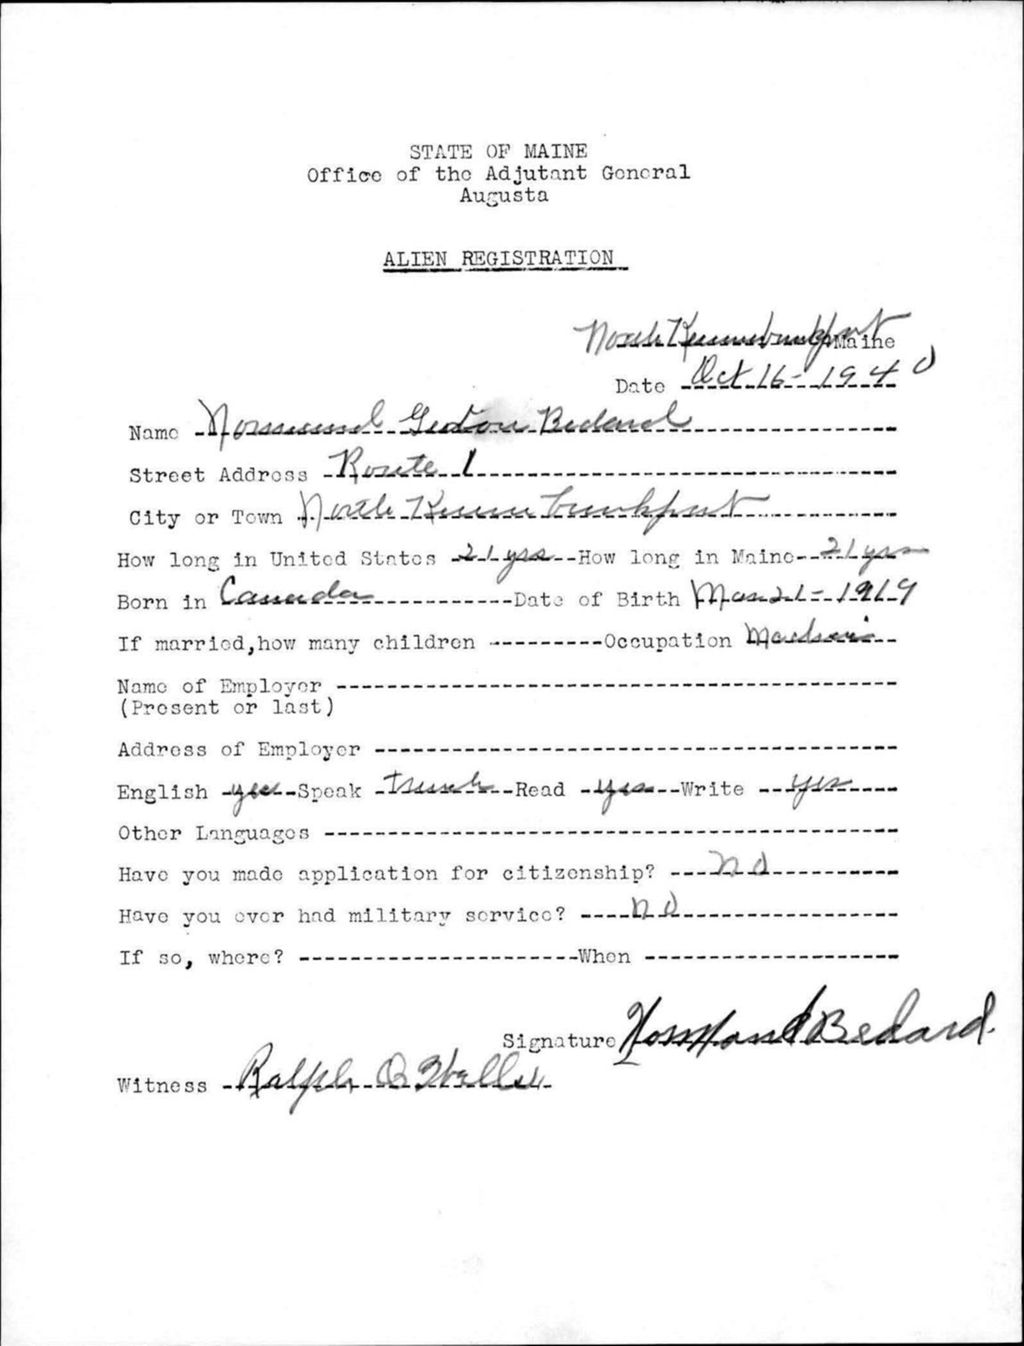 STATE OF MAINE
Office of the Adjutant General
Augusta
ALIEN REGISTRATION
North Kennebunkport Maine
Date Oct 16 - 1940
Name Normand Bedard
Street Address Route 1
City or Town North Kennebunkport
How long in United States 21 yrs How long in Maine 21 yrs
Born in Canada Date of Birth Mar 21 - 1919
If married, how many children Occupation
Name of Employer
(Present or last)
Address of Employer
English yes Speak French Read yes Write yes
Other Languages
Have you made application for citizenship? no
Have you ever had military service? no
If so, where? When
Signature Normand Bedard.
Witness Ralph